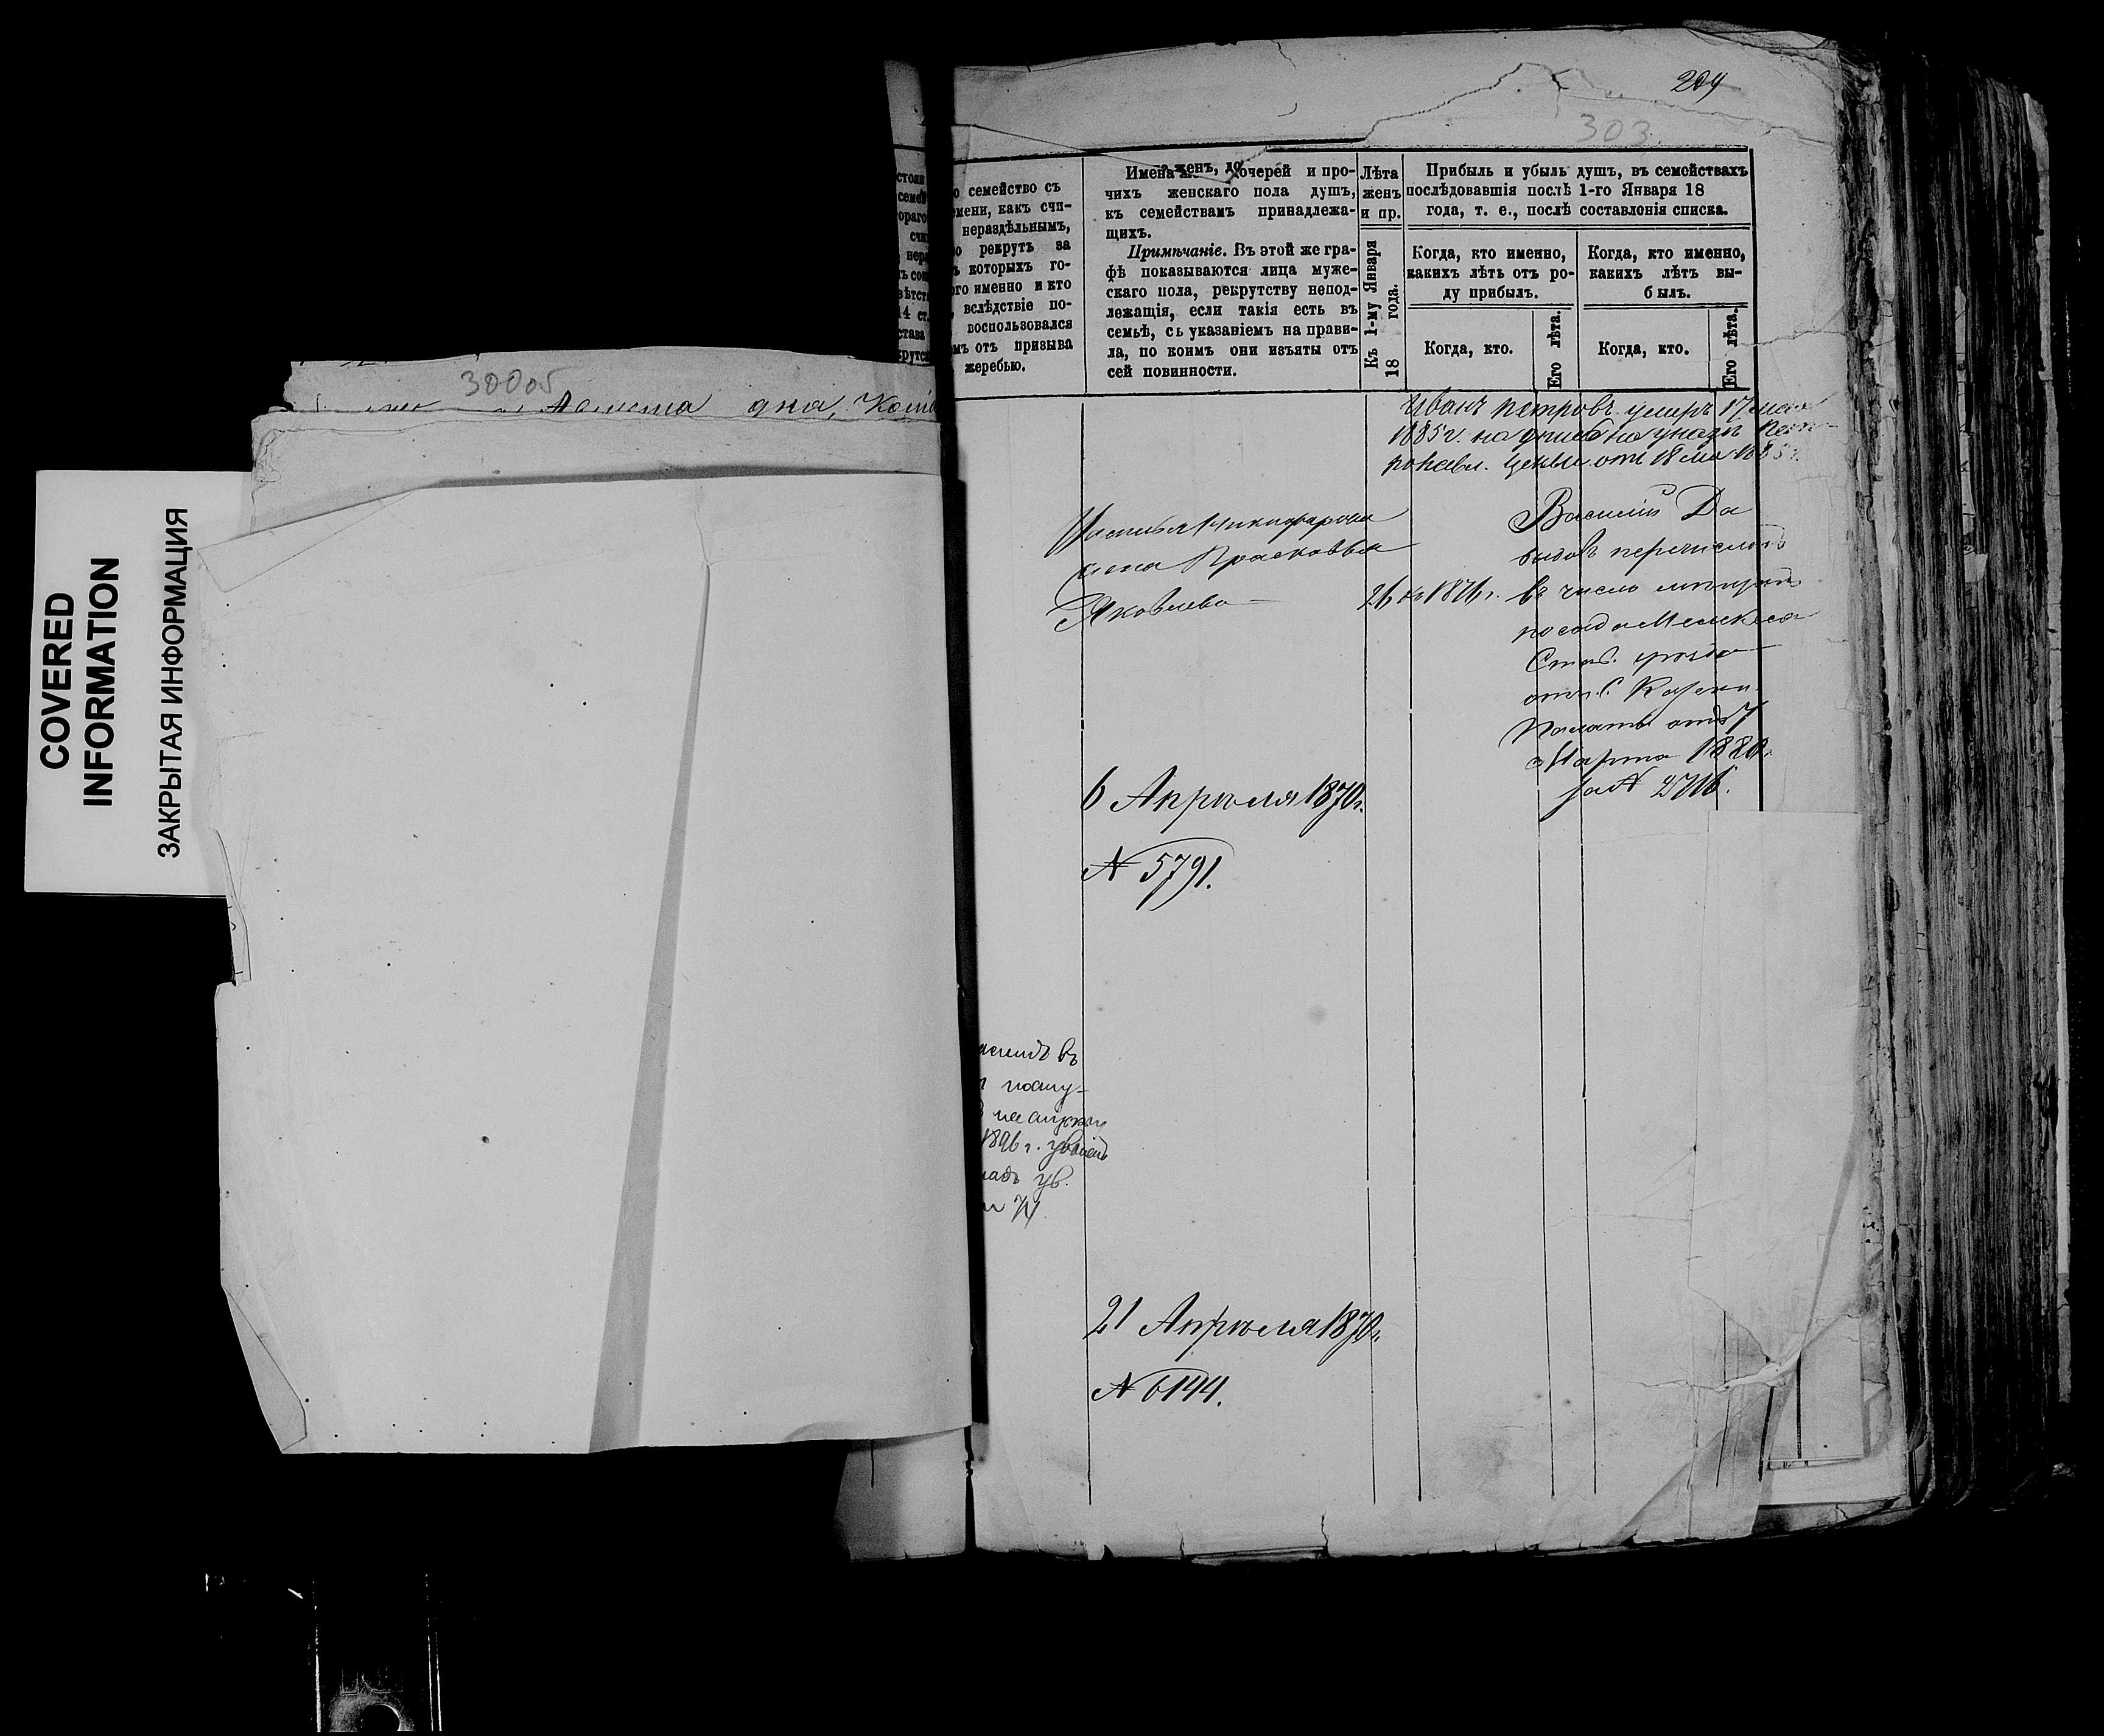 COVERED
INFORMATION
ЗАКРЫТАЯ ИНФОРМАЦИЯ
300об
дна,
204
303
о семейство съ
емени, какъ счи-
нераздѣльнымъ,
о рекрутъ за
ъ которыхъ го-
ого именно и кто
вслѣдствіе по-
воспользовался
мъ отъ призыва
жеребью.
Имена женъ, дочерей и про-
чихъ женскаго пола душъ,
къ семействамъ принадлежа-
щихъ.
Примѣчаніе. Въ этой же гра-
фѣ показываются лица муже-
скаго пола, рекрутству непод-
лежащія, если такія есть въ
семьѣ, съ указаніемъ на прави-
ла, по коимъ они изъяты отъ
сей повинности.
Лѣта
женъ
и пр.
Къ 1-му Января
18 года.
Прибыль и убыль душъ, въ семействахъ
послѣдовавшія послѣ 1-го Января 18
года, т. е., послѣ составленія списка.
Когда, кто именно,
какихъ лѣтъ отъ ро-
ду прибылъ.
Когда, кто именно,
какихъ лѣтъ вы-
былъ.
Когда, кто.
Его лѣта.
Когда, кто.
Его лѣта.
Иванъ Петровъ умеръ 17 мая
1885 г. на
от 18 мая 1885 г.
Никифорова
Прасковья
Яковлева
26 къ 1876 г.
Василій Да
выдовъ перечисленъ
въ число мѣщанъ
посада Мелекеса
Став. уѣзда
Казен.
Палаты отъ 7
Марта 1880 г.
за № 2716.
6 Апрѣля 1870 г.
№ 5791.
въ
1896 г.
ув.
21 Апрѣля 1870 г.
№ 6144.